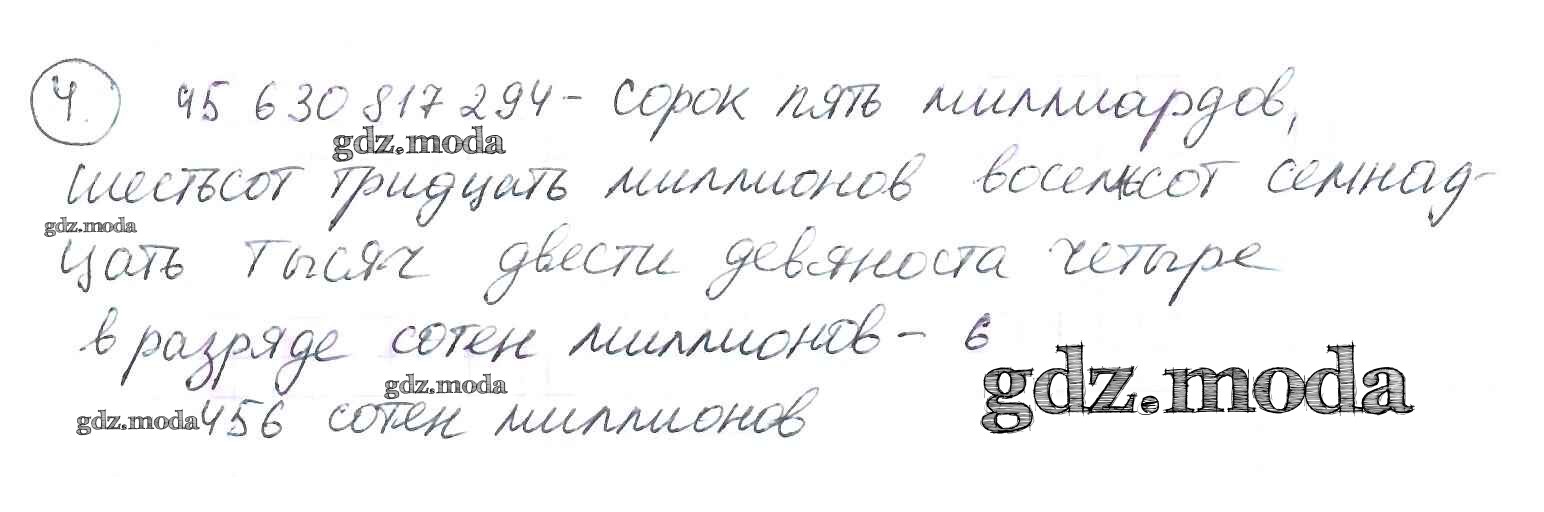 4. 45 630 817 294 - сорок пять миллиардов,
gdz.moda
шестьсот тридцать миллионов восемьсот семнад-
gdz.moda
цать тысяч двести девяноста четыре
в разряде сотен миллионов - 6
gdz.moda
gdz.moda
gdz.moda 456 сотен миллионов